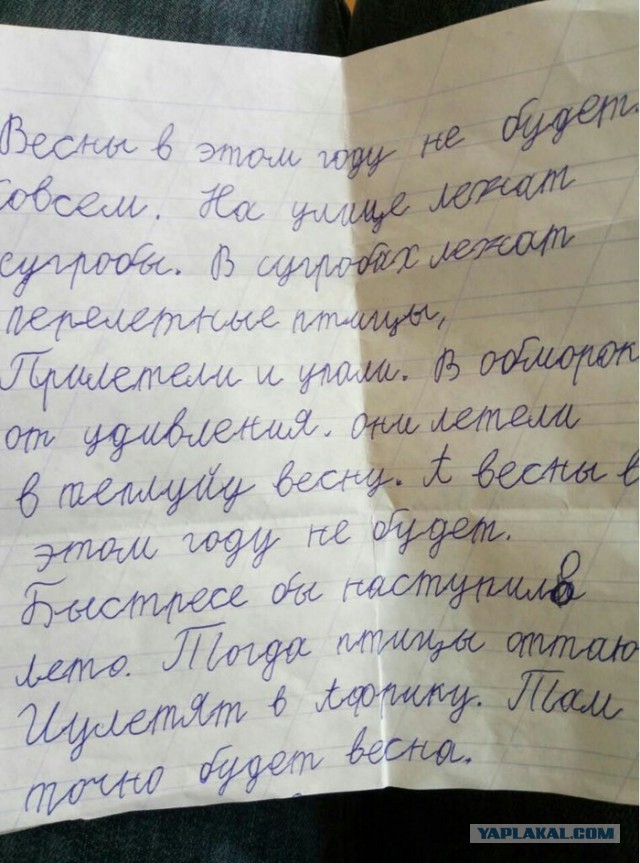 Весны в этом году не будет.
Совсем. На улице лежат
сугробы. В сугробах лежат
перелетные птицы,
Прилетели и упали. В обморок
от удивления. они летели
в теплуйу весну. А весны в
этом году не будет.
Быстресе бы наступило
лето. Тогда птицы оттаю
Иулетят в Африку. Там
точно будет весна.
YAPLAKAL.COM